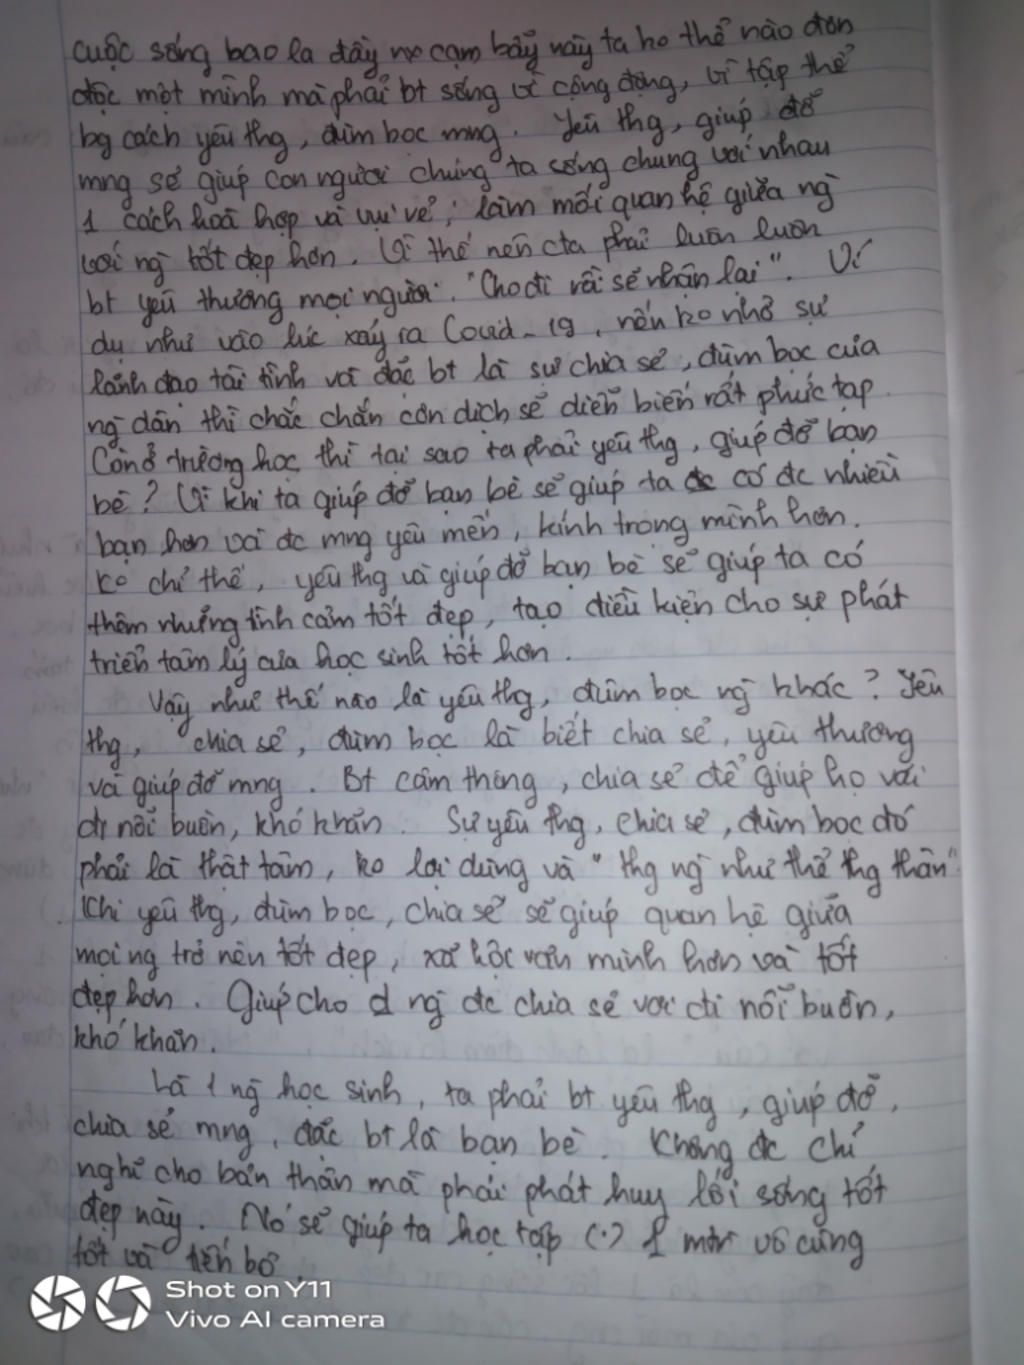 cuộc sống bao la đầy cạm bẫy này ta ko thể nào đơn
độc một mình mà phải bt sống vì cộng đồng, vì tập thể
bg cách yêu thg, đùm bọc mng. Yêu thg, giúp đỡ
mng sẽ giúp con người chúng ta sống chung với nhau
1 cách hoà hợp và vui vẻ, làm mối quan hệ giữa ng
với ng tốt đẹp hơn. Vì thế nên cta phải luôn luôn
bt yêu thương mọi người. "Cho đi rồi sẽ nhận lại". Ví
dụ như vào lúc xảy ra Covid-19, nếu ko nhờ sự
lãnh đạo tài tình và đặc bt là sự chia sẻ, đùm bọc của
ng dân thì chắc chắn cơn dịch sẽ diễn biến rất phức tạp.
Còn ở trường học thì tại sao ta phải yêu thg, giúp đỡ bạn
bè? Vì khi ta giúp đỡ bạn bè sẽ giúp ta có đc nhiều
bạn hơn và đc mng yêu mến, kính trọng mình hơn.
Ko chỉ thế, yêu thg và giúp đỡ bạn bè sẽ giúp ta có
thêm những tình cảm tốt đẹp, tạo điều kiện cho sự phát
triển tâm lý của học sinh tốt hơn.
Vậy như thế nào là yêu thg, đùm bọc ng khác? Yêu
thg, chia sẻ, đùm bọc là biết chia sẻ, yêu thương
và giúp đỡ mng. Bt cảm thông, chia sẻ để giúp họ vơi
đi nỗi buồn, khó khăn. Sự yêu thg, chia sẻ, đùm bọc đó
phải là thật tâm, ko lợi dụng và "thg ng như thể thg thân"
Khi yêu thg, đùm bọc, chia sẻ sẽ giúp quan hệ giữa
mọi ng trở nên tốt đẹp, xã hội văn minh hơn và tốt
đẹp hơn. Giúp cho ng đc chia sẻ vơi đi nỗi buồn,
khó khăn.
Là 1 ng học sinh, ta phải bt yêu thg, giúp đỡ,
chia sẻ mng, đặc bt là bạn bè. Không đc chỉ
nghĩ cho bản thân mà phải phát huy lối sống tốt
đẹp này. Nó sẽ giúp ta học tập (.) 1 mtr vô cùng
tốt và tiến bộ.
Shot on Y11
Vivo AI camera